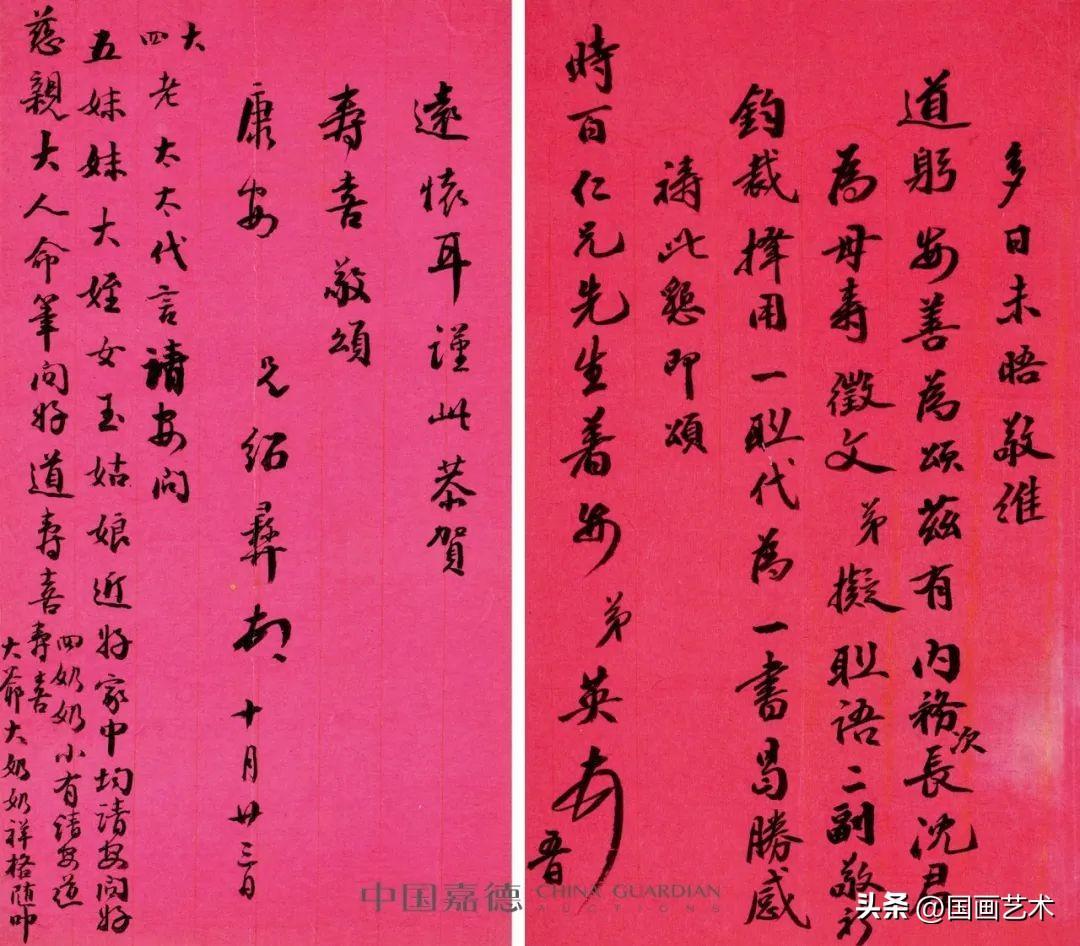 多日未晤敬維
道躬安善為頌茲有內務次長沈君
為母壽徵文弟擬聯語二副敬祈
鈞裁擇用一聯代為一書曷勝感
禱此懇即頌
時百仁兄先生著安 弟英
遠懷耳謹此恭賀
壽喜敬頌
康安 兄紹彝 十月廿三日
大四老太太代言請安問
五妹妹大姪女玉姑娘近好家中均請安問好
慈親大人命筆問好道壽喜
四奶奶小有請安道壽喜
大爺大奶奶祥格隨叩
中国嘉德 CHINA GUARDIAN
AUCTIONS
头条@国画艺术